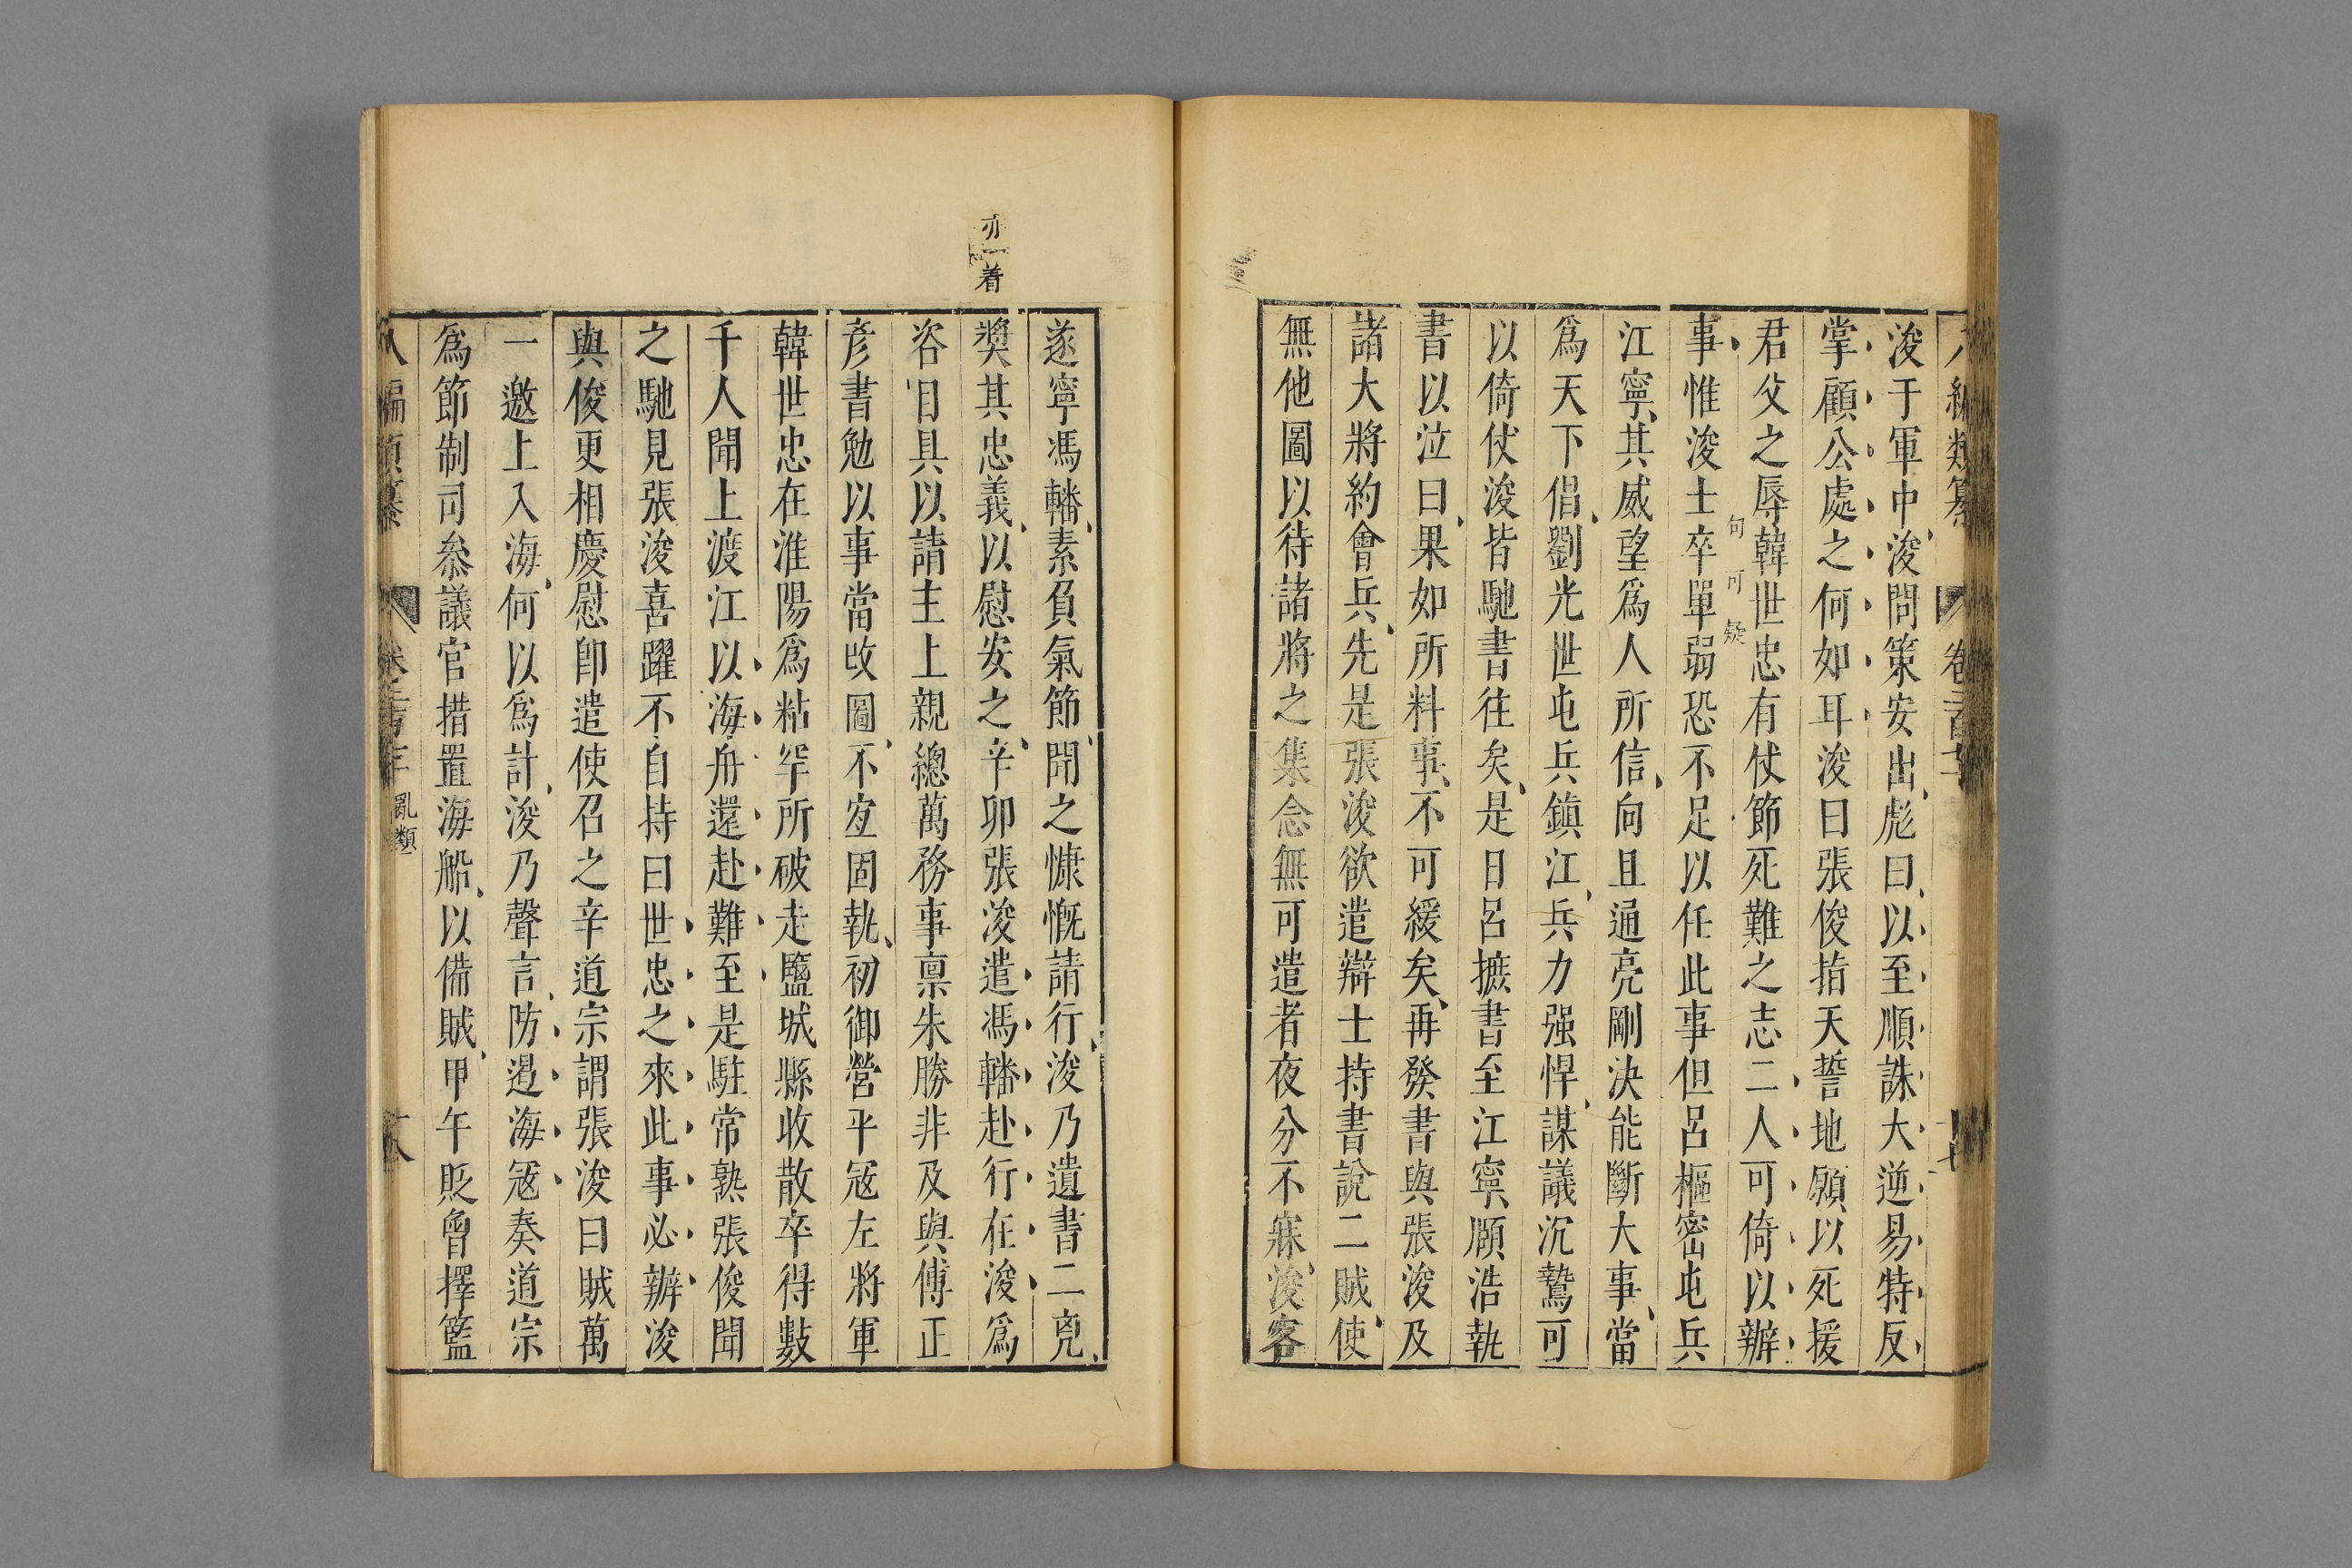 八編類纂 卷二百七十
浚于軍中浚問策安出彪曰以至順誅大逆易特反
掌顧公處之何如耳浚曰張俊指天誓地願以死援
君父之辱韓世忠有仗節死難之志二人可倚以辦
句可疑
事惟浚士卒單弱恐不足以任此事但呂樞密屯兵
江寧其威望爲人所信向且通亮剛決能斷大事當
爲天下倡劉光世屯兵鎮江兵力强悍謀議沉鷙可
以倚仗浚皆馳書往矣是日呂摭書至江寧願浩執
書以泣曰果如所料事不可緩矣再發書與張浚及
諸大將約會兵先是張浚欲遣辯士持書說二賊使
無他圖以待諸將之集念無可遣者夜分不寐浚客
亦一着
遂寧馮轓素負氣節聞之慷慨請行浚乃遺書二兇
奬其忠義以慰安之辛卯張浚遣馮轓赴行在浚爲
咨目具以請主上親總萬務事稟朱勝非及與傅正
彦書勉以事當改圖不宜固執初御營平冦左將軍
韓世忠在淮陽爲粘罕所破走鹽城縣收散卒得數
千人聞上渡江以海舟還赴難至是駐常熟張俊聞
之馳見張浚喜躍不自持曰世忠之來此事必辦浚
與俊更相慶慰卽遣使召之辛道宗謂張浚曰賊萬
一邀上入海何以爲計浚乃聲言防遏海冦奏道宗
爲節制司叅議官措置海船以備賊甲午貶曾擇籃
八編類纂 亂類 十八